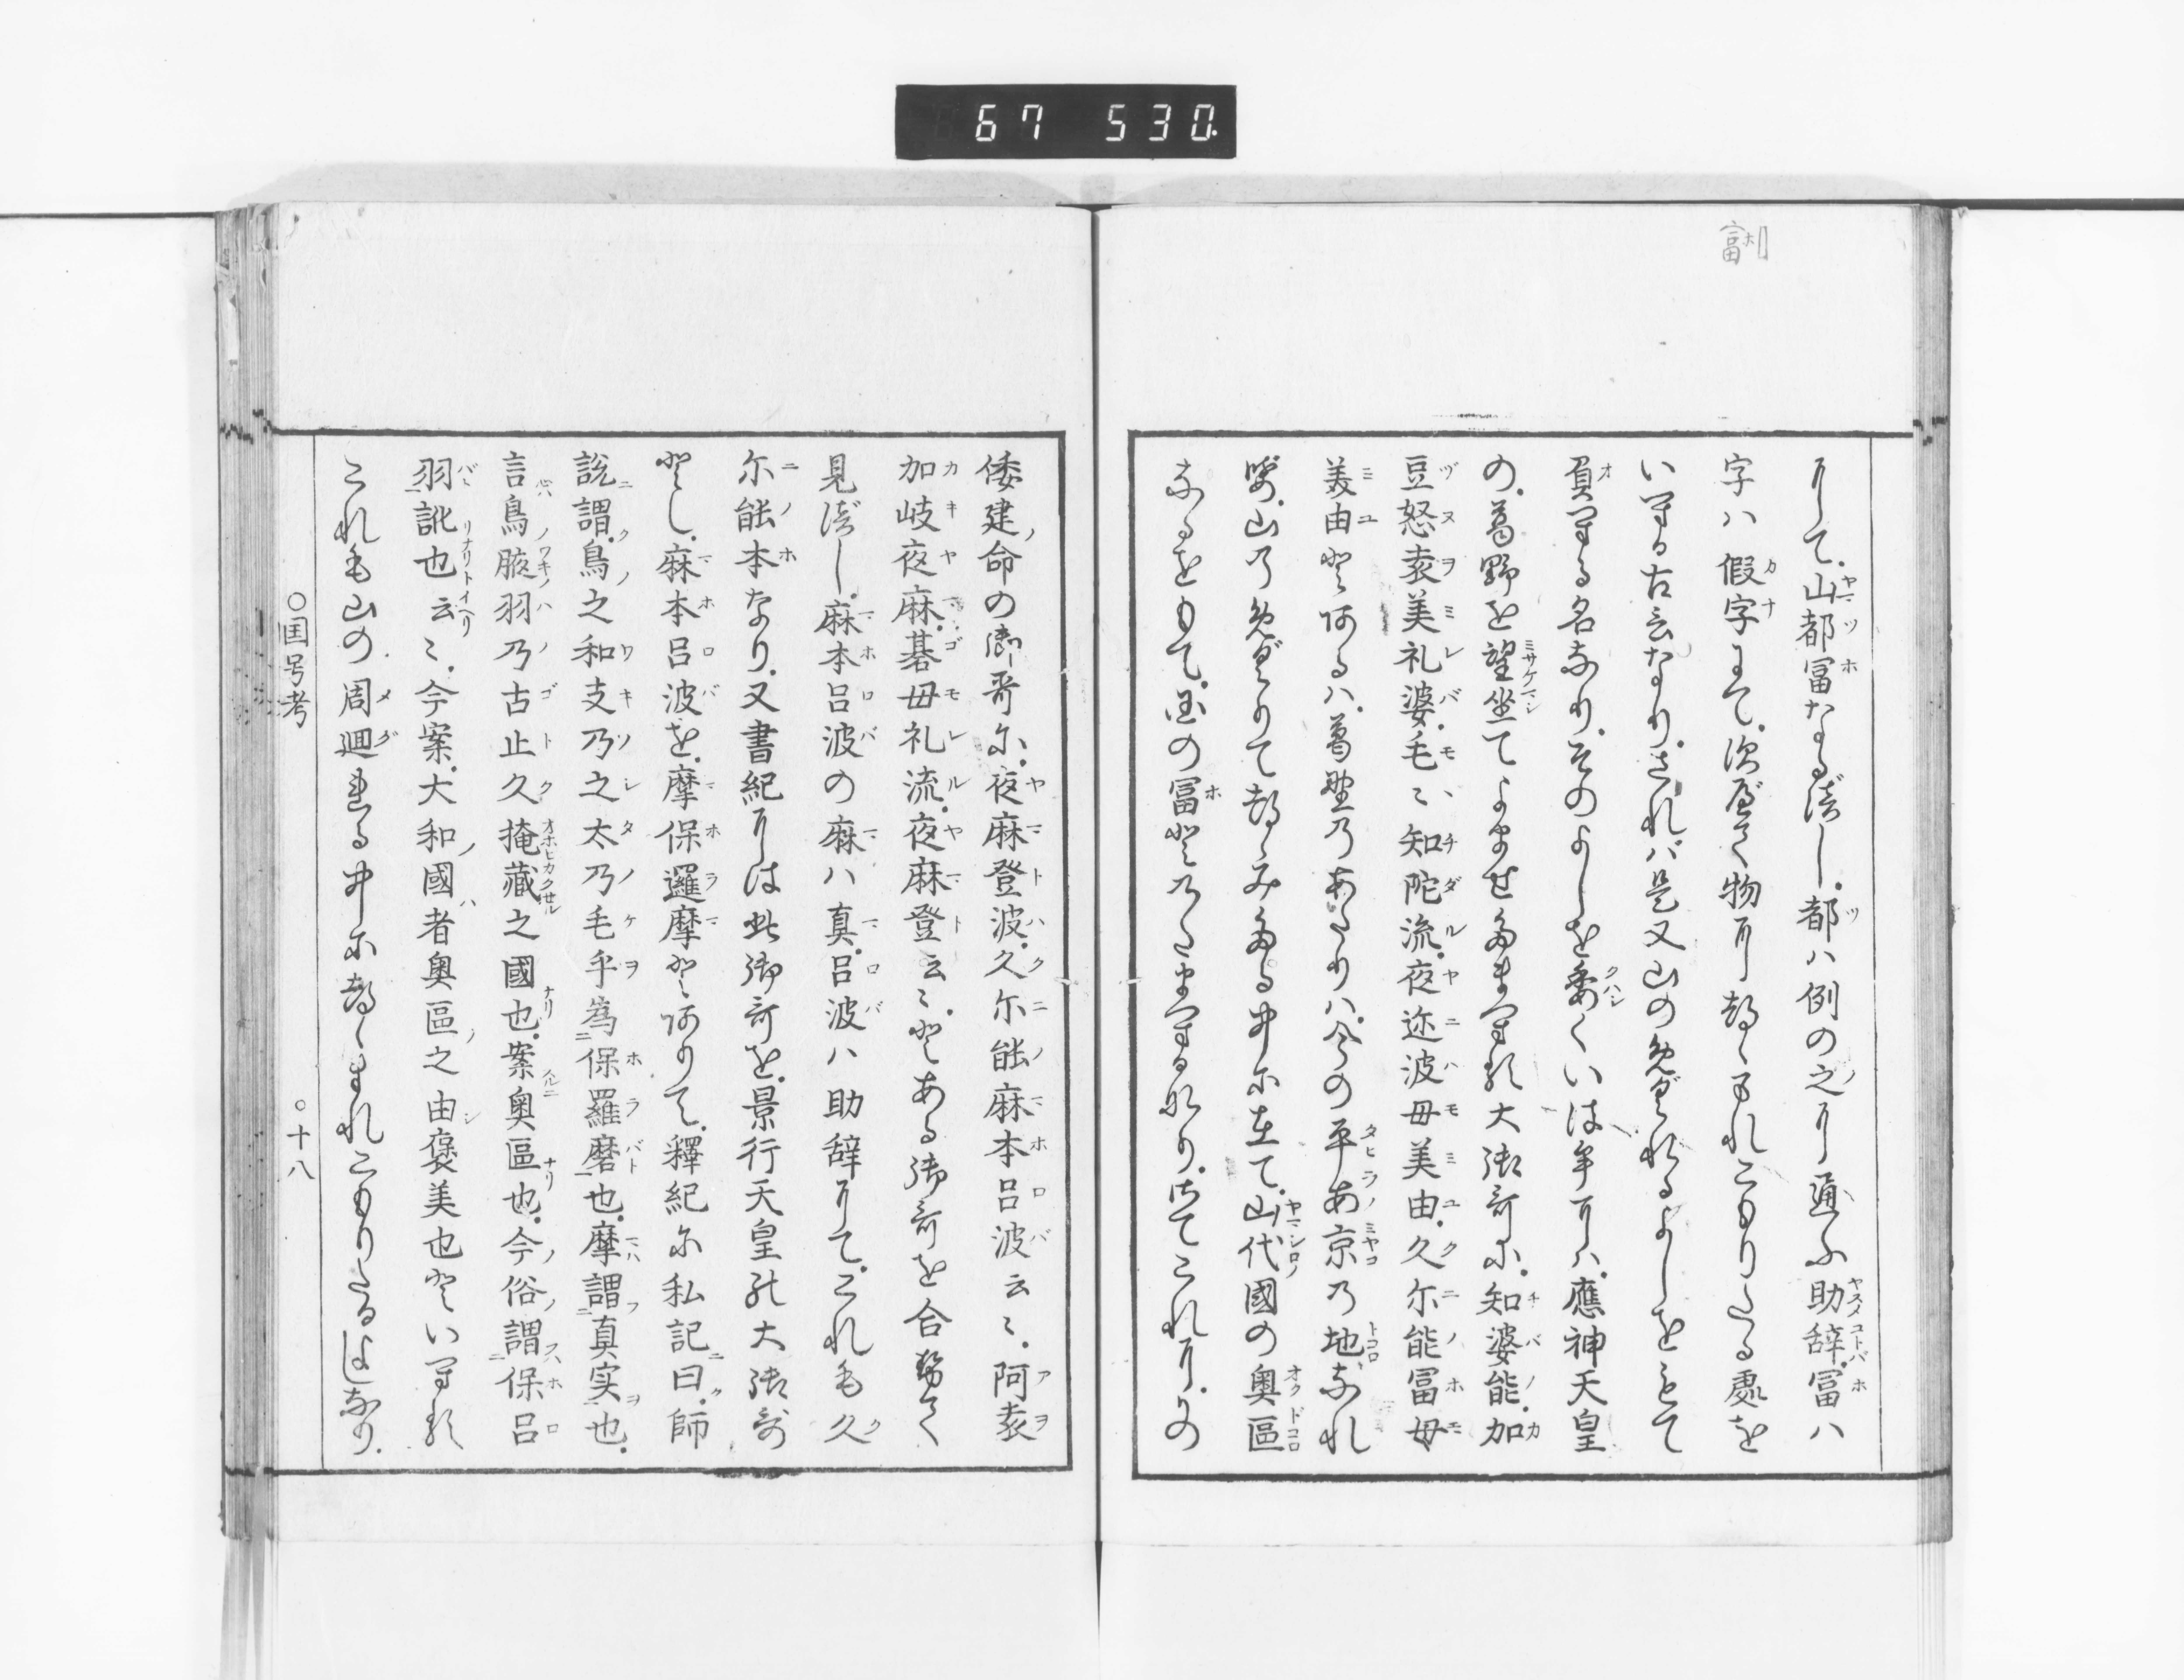 67 530
富 ホ
にして、山都富なるべし、都ハ例の之に通ふ助辞、富ハ
字ハ假字にて、すべて物につゝまれこもりたる處を
いへる古言なり、されバ是又山のめぐれるよしをもて
負へる名なり、そのよしを委くいはむにハ、應神天皇
の、葛野を望坐てよませ給へる大御哥に、知婆能、加
豆怒袁美礼婆、毛々、知陀流、夜迩波母美由、久尓能冨母
美由とあるハ、葛野のあたりハ、今の平安京の地なれ
婆、山のめぐりてつゝみたる中に在て、山代國の奥區
なるをもて、国の冨とのたまへるなり、さてこれに、かの
倭建命の御哥に、夜麻登波、久尓能麻本呂波云々、阿袁
加岐夜麻、碁母礼流、夜麻登云々、とある御哥を合せて
見べし、麻本呂波の麻ハ真、呂波ハ助辞にて、これも久
尓能本なり、又書紀には此御哥を、景行天皇の大御哥
とし、麻本呂波を、摩保邏摩とありて、釋紀に私記曰、師
説謂、鳥之和支乃之太乃毛乎為保羅磨也、摩謂真実也、
言鳥腋羽乃古止久掩藏之國也、案奥區也、今俗謂保呂
羽訛也云々、今案、大和國者奥區之由褒美也といへる
これも山の周廻れる中につゝまれこもりたる註なり、
○国号考 ○十八